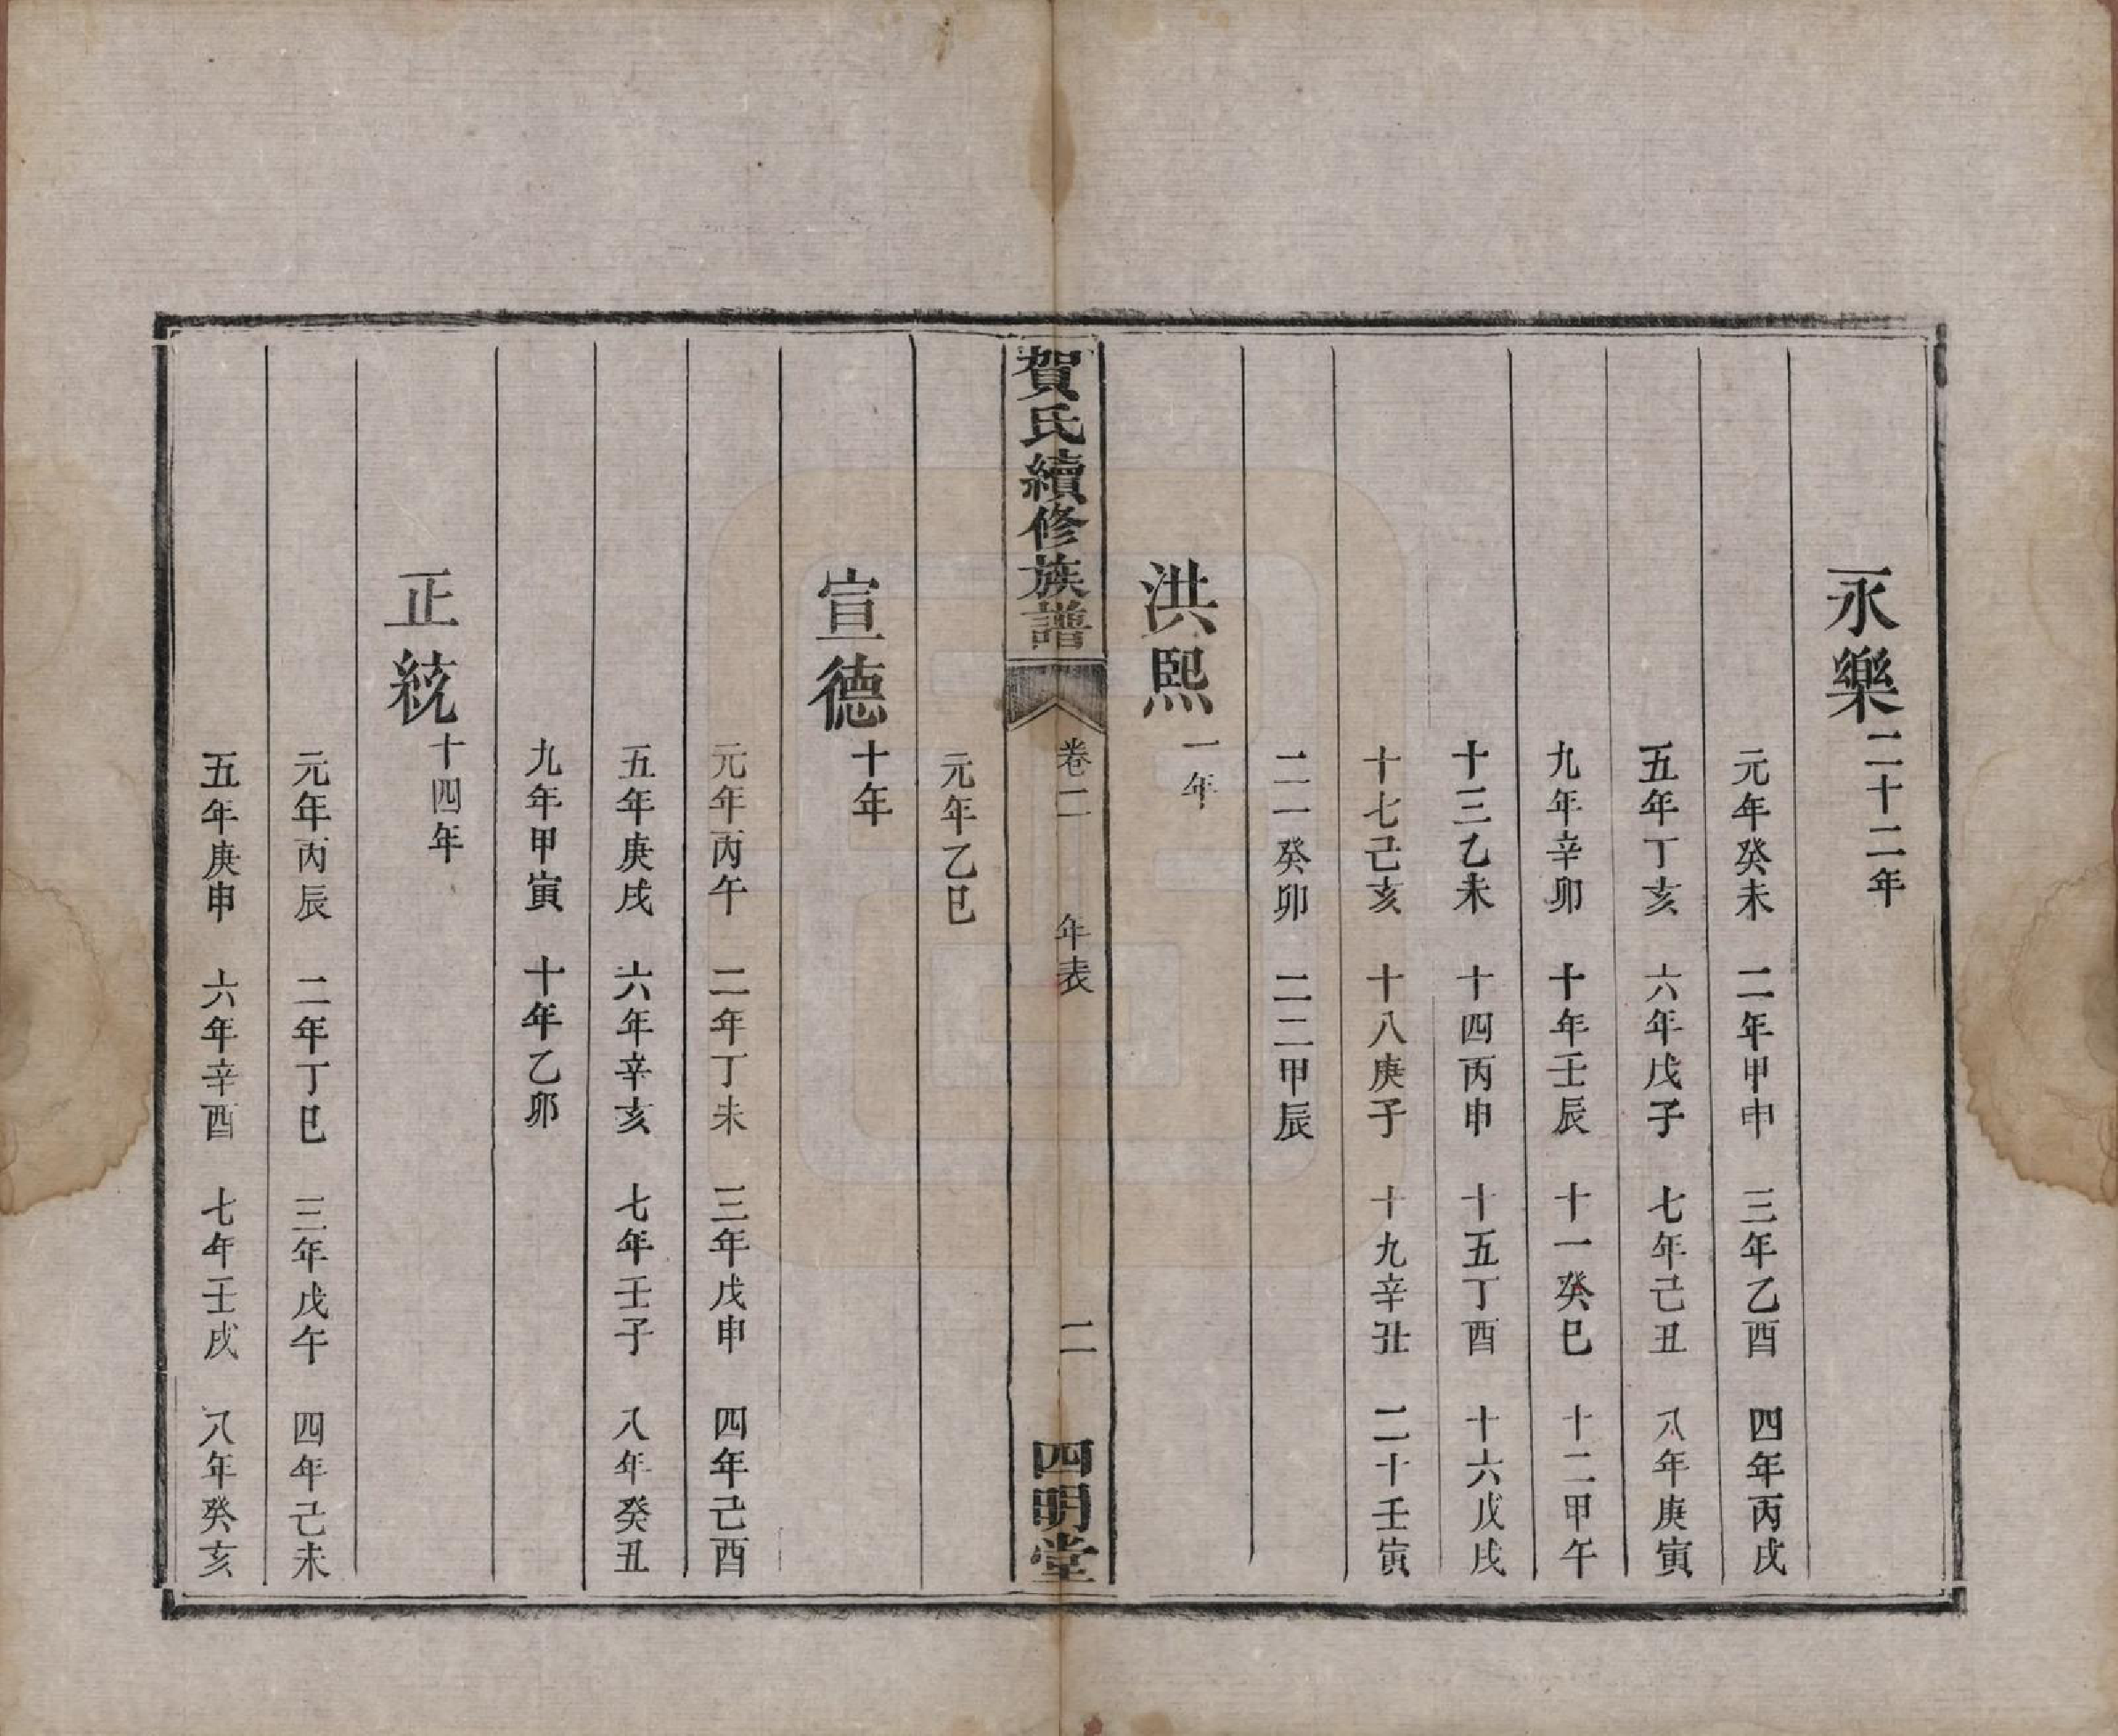 永樂二十二年
元年癸未 二年甲申 三年乙酉 四年丙戌
五年丁亥 六年戊子 七年己丑 八年庚寅
九年辛卯 十年壬辰 十一癸巳 十二甲午
十三乙未 十四丙申 十五丁酉 十六戊戌
十七己亥 十八庚子 十九辛丑 二十壬寅
二一癸卯 二二甲辰
洪熙一年
賀氏續修族譜 卷二 年表 二 四明堂
元年乙巳
宣德十年
元年丙午 二年丁未 三年戊申 四年己酉
五年庚戌 六年辛亥 七年壬子 八年癸丑
九年甲寅 十年乙卯
正統十四年
元年丙辰 二年丁巳 三年戊午 四年己未
五年庚申 六年辛酉 七年壬戌 八年癸亥